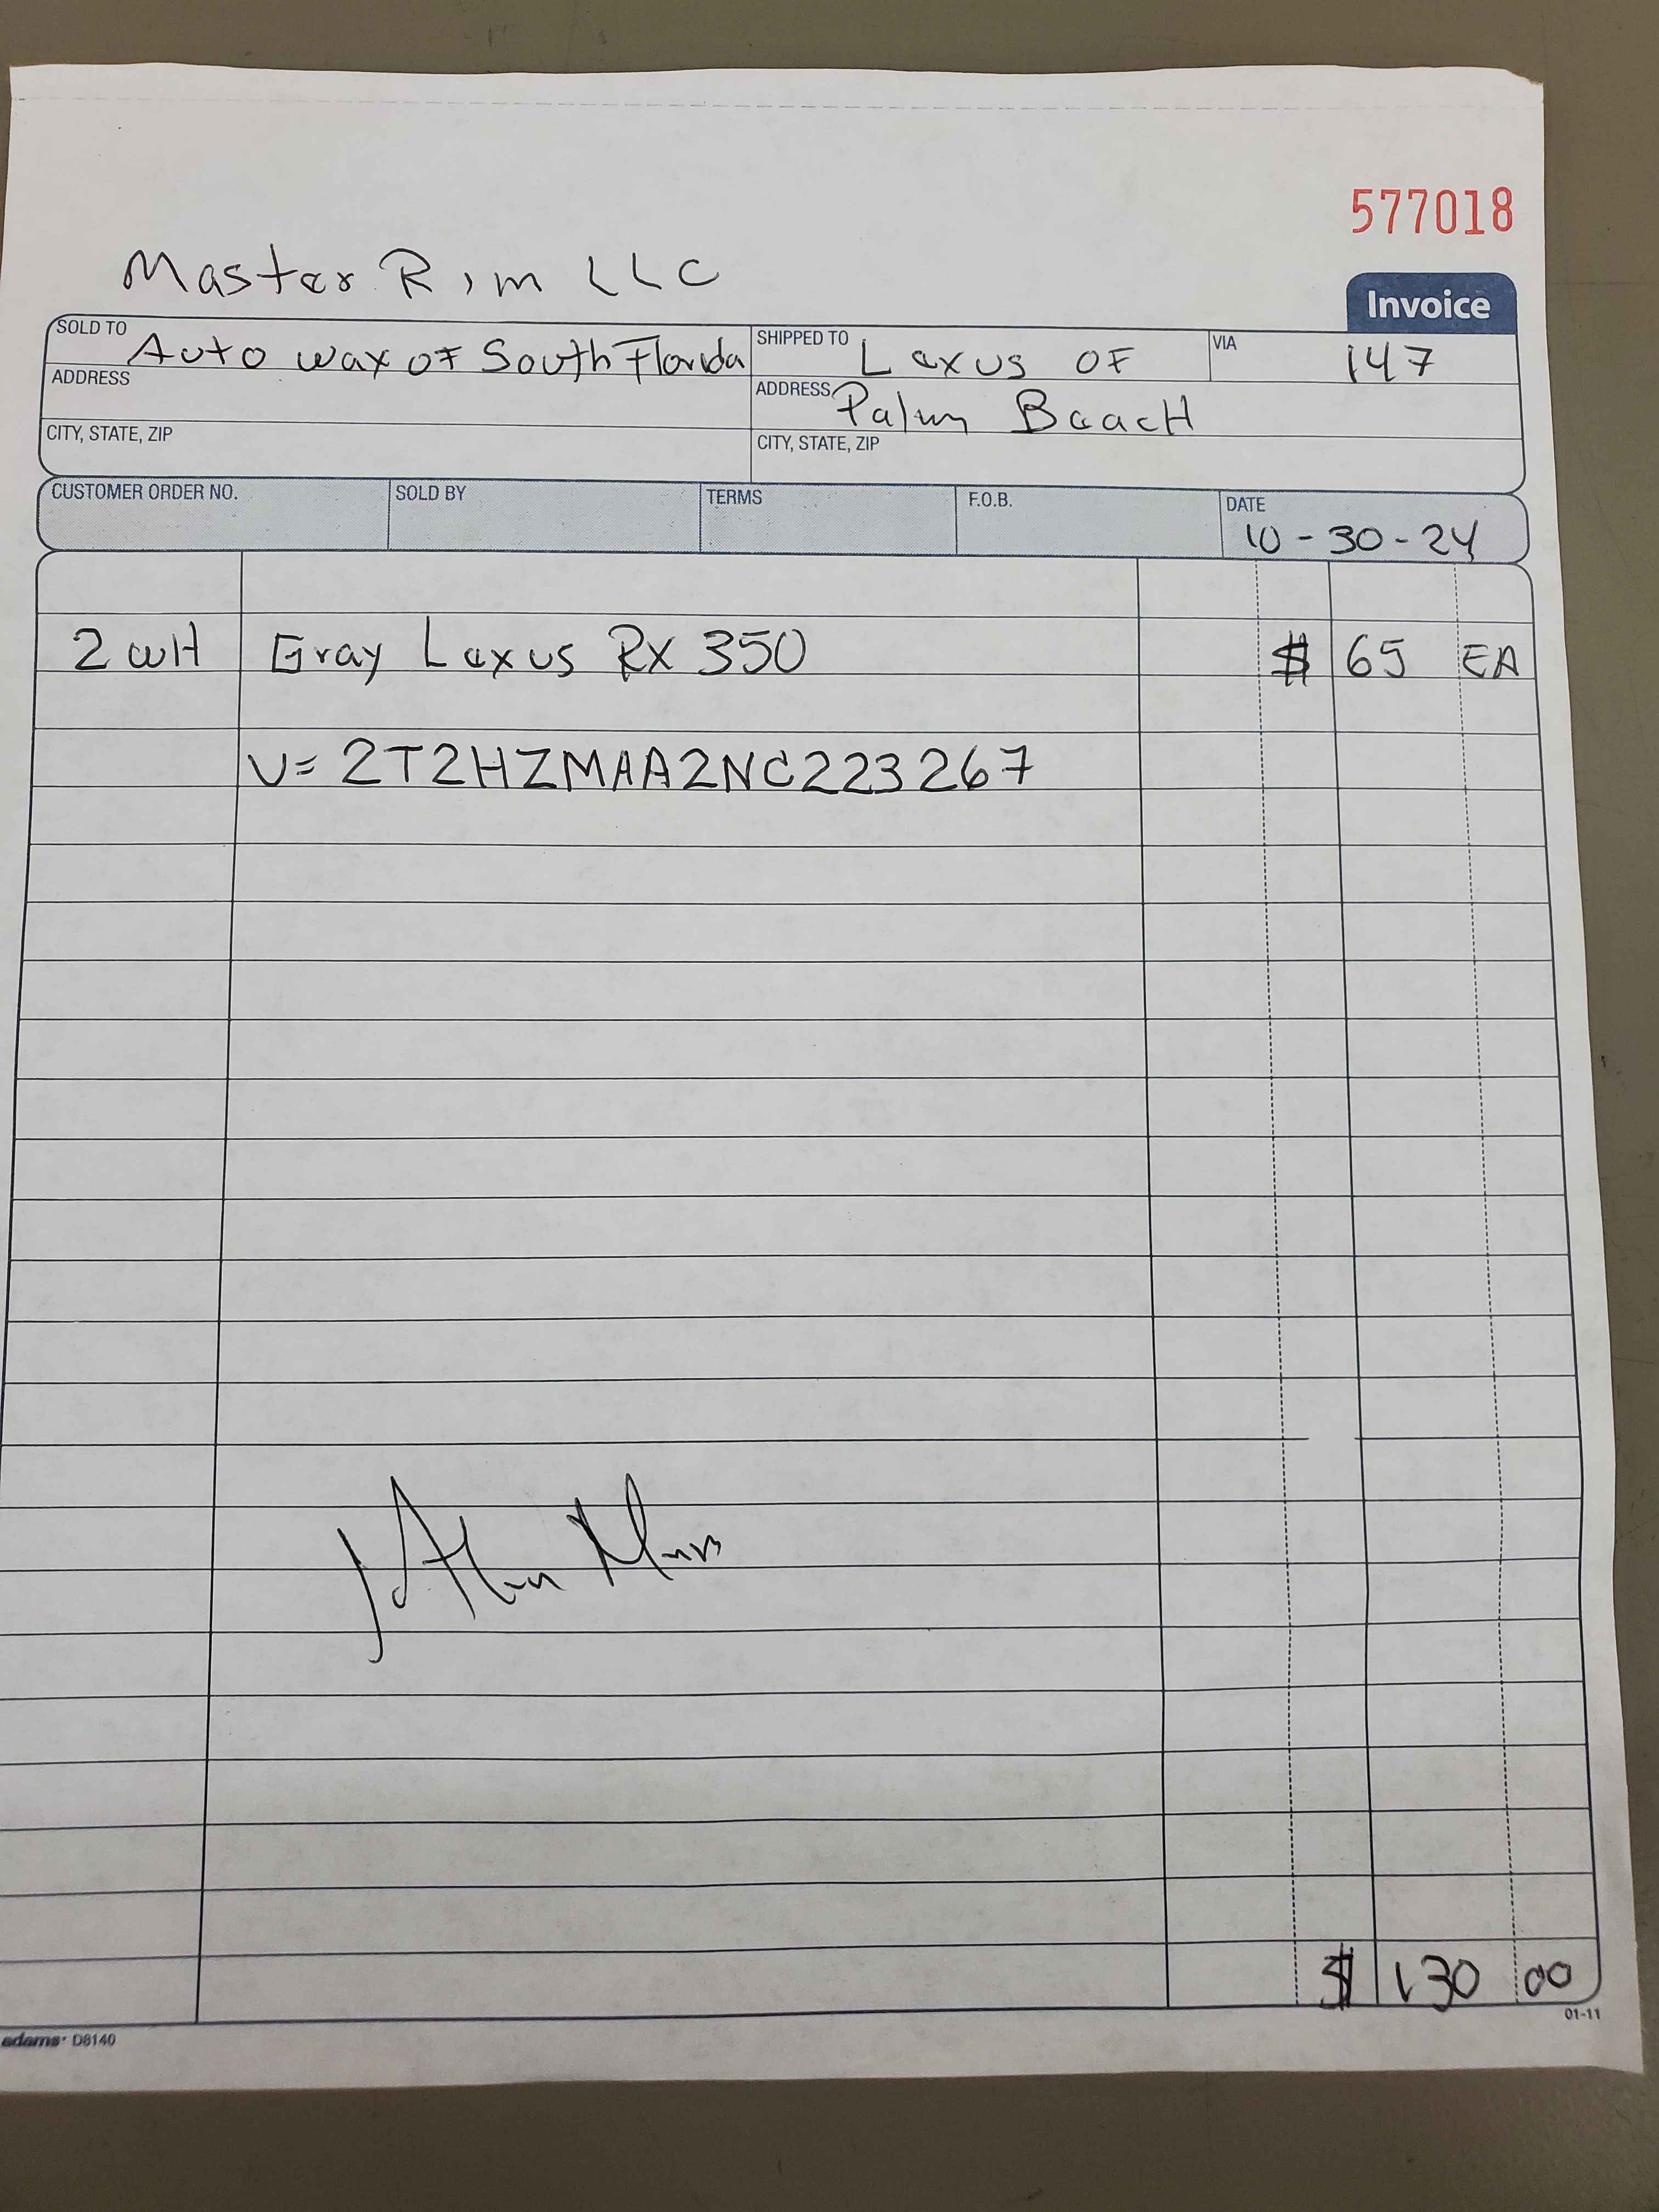 577018
Master Rim LLC
Invoice
SOLD TO Auto wax of South Florida SHIPPED TO Lexus OF VIA 147
ADDRESS ADDRESS Palm BeacH
CITY, STATE, ZIP CITY, STATE, ZIP
CUSTOMER ORDER NO. SOLD BY TERMS F.O.B. DATE
10-30-24
2 wH Gray Lexus Rx 350 $ 65 EA
V= 2T2HZMAA2NC223267
$ 130 00
01-11
adams D8140